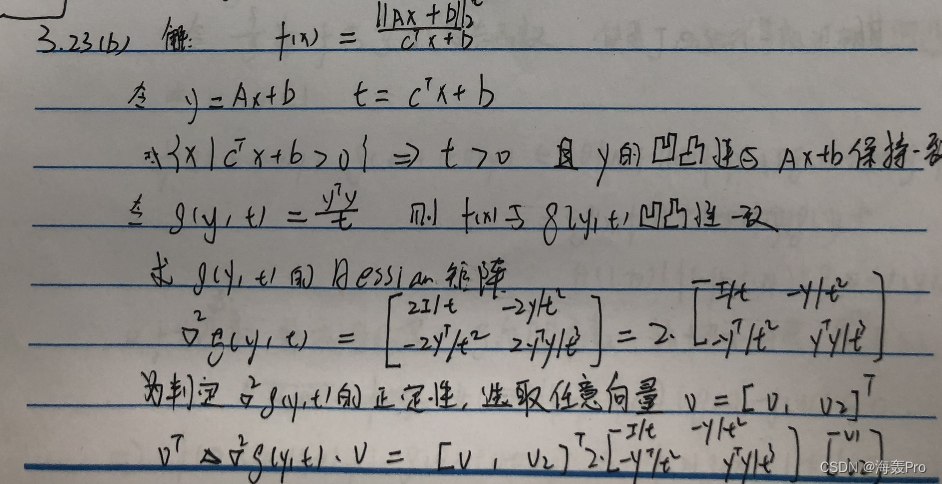 3.23(b) 解: f(x) = ||Ax + b||₂² / cᵀx + b
令 y = Ax + b t = cᵀx + b
对 {x | cᵀx + b > 0} ⇒ t > 0 且 y 的凹凸性与 Ax+b 保持一致
令 g(y, t) = yᵀy / t 则 f(x) 与 g(y, t) 凹凸性一致
求 g(y, t) 的 Hessian 矩阵
∇²g(y, t) = [2I/t -2y/t² ; -2yᵀ/t² 2·yᵀy/t³] = 2· [I/t -y/t² ; -yᵀ/t² yᵀy/t³]
为判定 ∇²g(y, t) 的正定性, 选取任意向量 v = [v, v2]ᵀ
vᵀ ∇²g(y, t) · v = [v, v2]ᵀ 2·[I/t -y/t² ; -yᵀ/t² yᵀy/t³] [v1
CSDN @海轰Pro